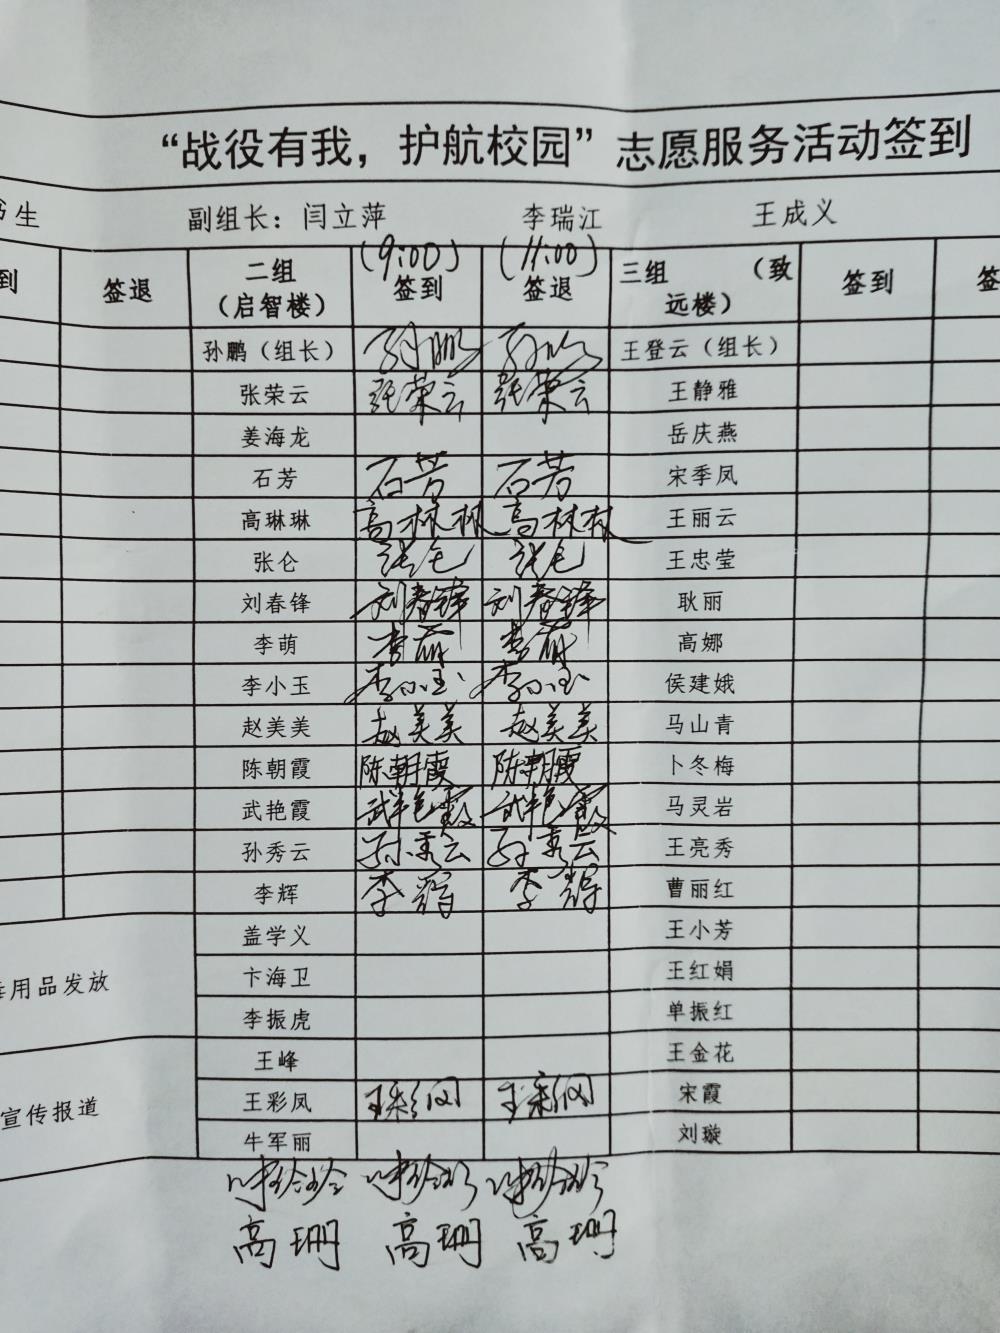 “战役有我，护航校园”志愿服务活动签到
生 副组长：闫立萍 李瑞江 王成义
到 签退 二组（启智楼） (9:00) 签到 (11:00) 签退 三组（致远楼） 签到 签
孙鹏（组长） 孙鹏 孙鹏 王登云（组长）
张荣云 张荣云 张荣云 王静雅
姜海龙 岳庆燕
石芳 石芳 石芳 宋季凤
高琳琳 高林林 高林林 王丽云
张仑 张仑 张仑 王忠莹
刘春锋 刘春锋 刘春锋 耿丽
李萌 李萌 李萌 高娜
李小玉 李小玉 李小玉 侯建娥
赵美美 赵美美 赵美美 马山青
陈朝霞 陈朝霞 陈朝霞 卜冬梅
武艳霞 武艳霞 武艳霞 马灵岩
孙秀云 孙秀云 孙秀云 王亮秀
李辉 李辉 李辉 曹丽红
盖学义 王小芳
用品发放 卞海卫 王红娟
李振虎 单振红
王峰 王金花
宣传报道 王彩凤 王彩凤 王彩凤 宋霞
牛军丽 刘璇
高珊 高珊 高珊